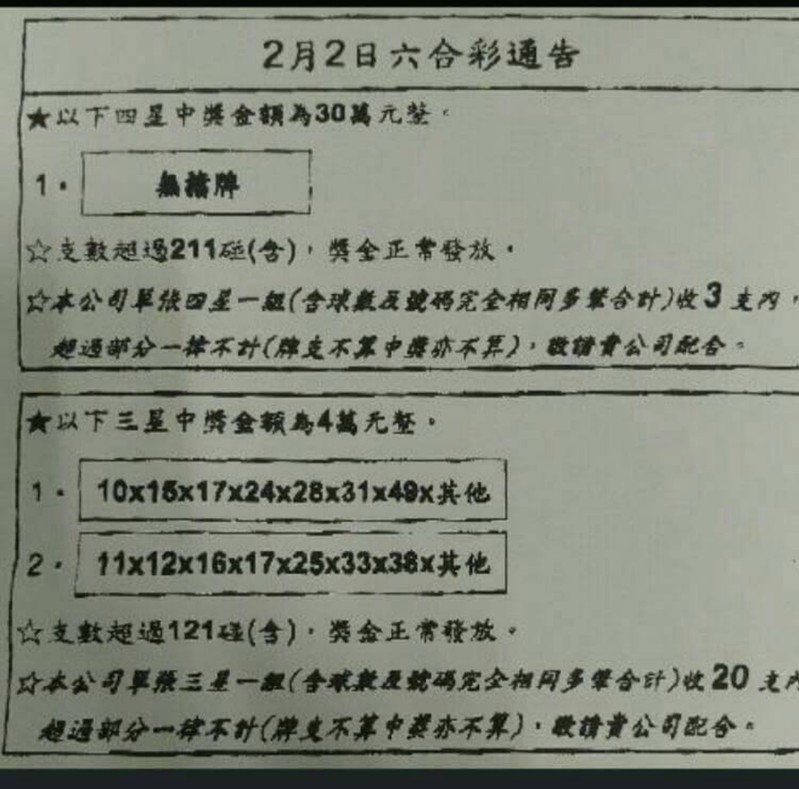 2月2日六合彩通告
★以下四星中獎金額為30萬元整。
1. 無擋牌
☆支數超過211碰(含)，獎金正常發放。
☆本公司單張四星一組(含球數及號碼完全相同多筆合計)收3支內，
超過部分一律不計(牌支不算中獎亦不算)，敬請貴公司配合。
★以下三星中獎金額為4萬元整。
1. 10x15x17x24x28x31x49x其他
2. 11x12x16x17x25x33x38x其他
☆支數超過121碰(含)，獎金正常發放。
☆本公司單張三星一組(含球數及號碼完全相同多筆合計)收20支內
超過部分一律不計(牌支不算中獎亦不算)，敬請貴公司配合。